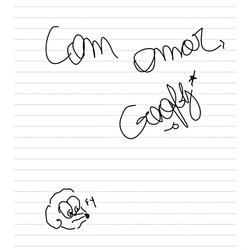 Com amor,
Goofy